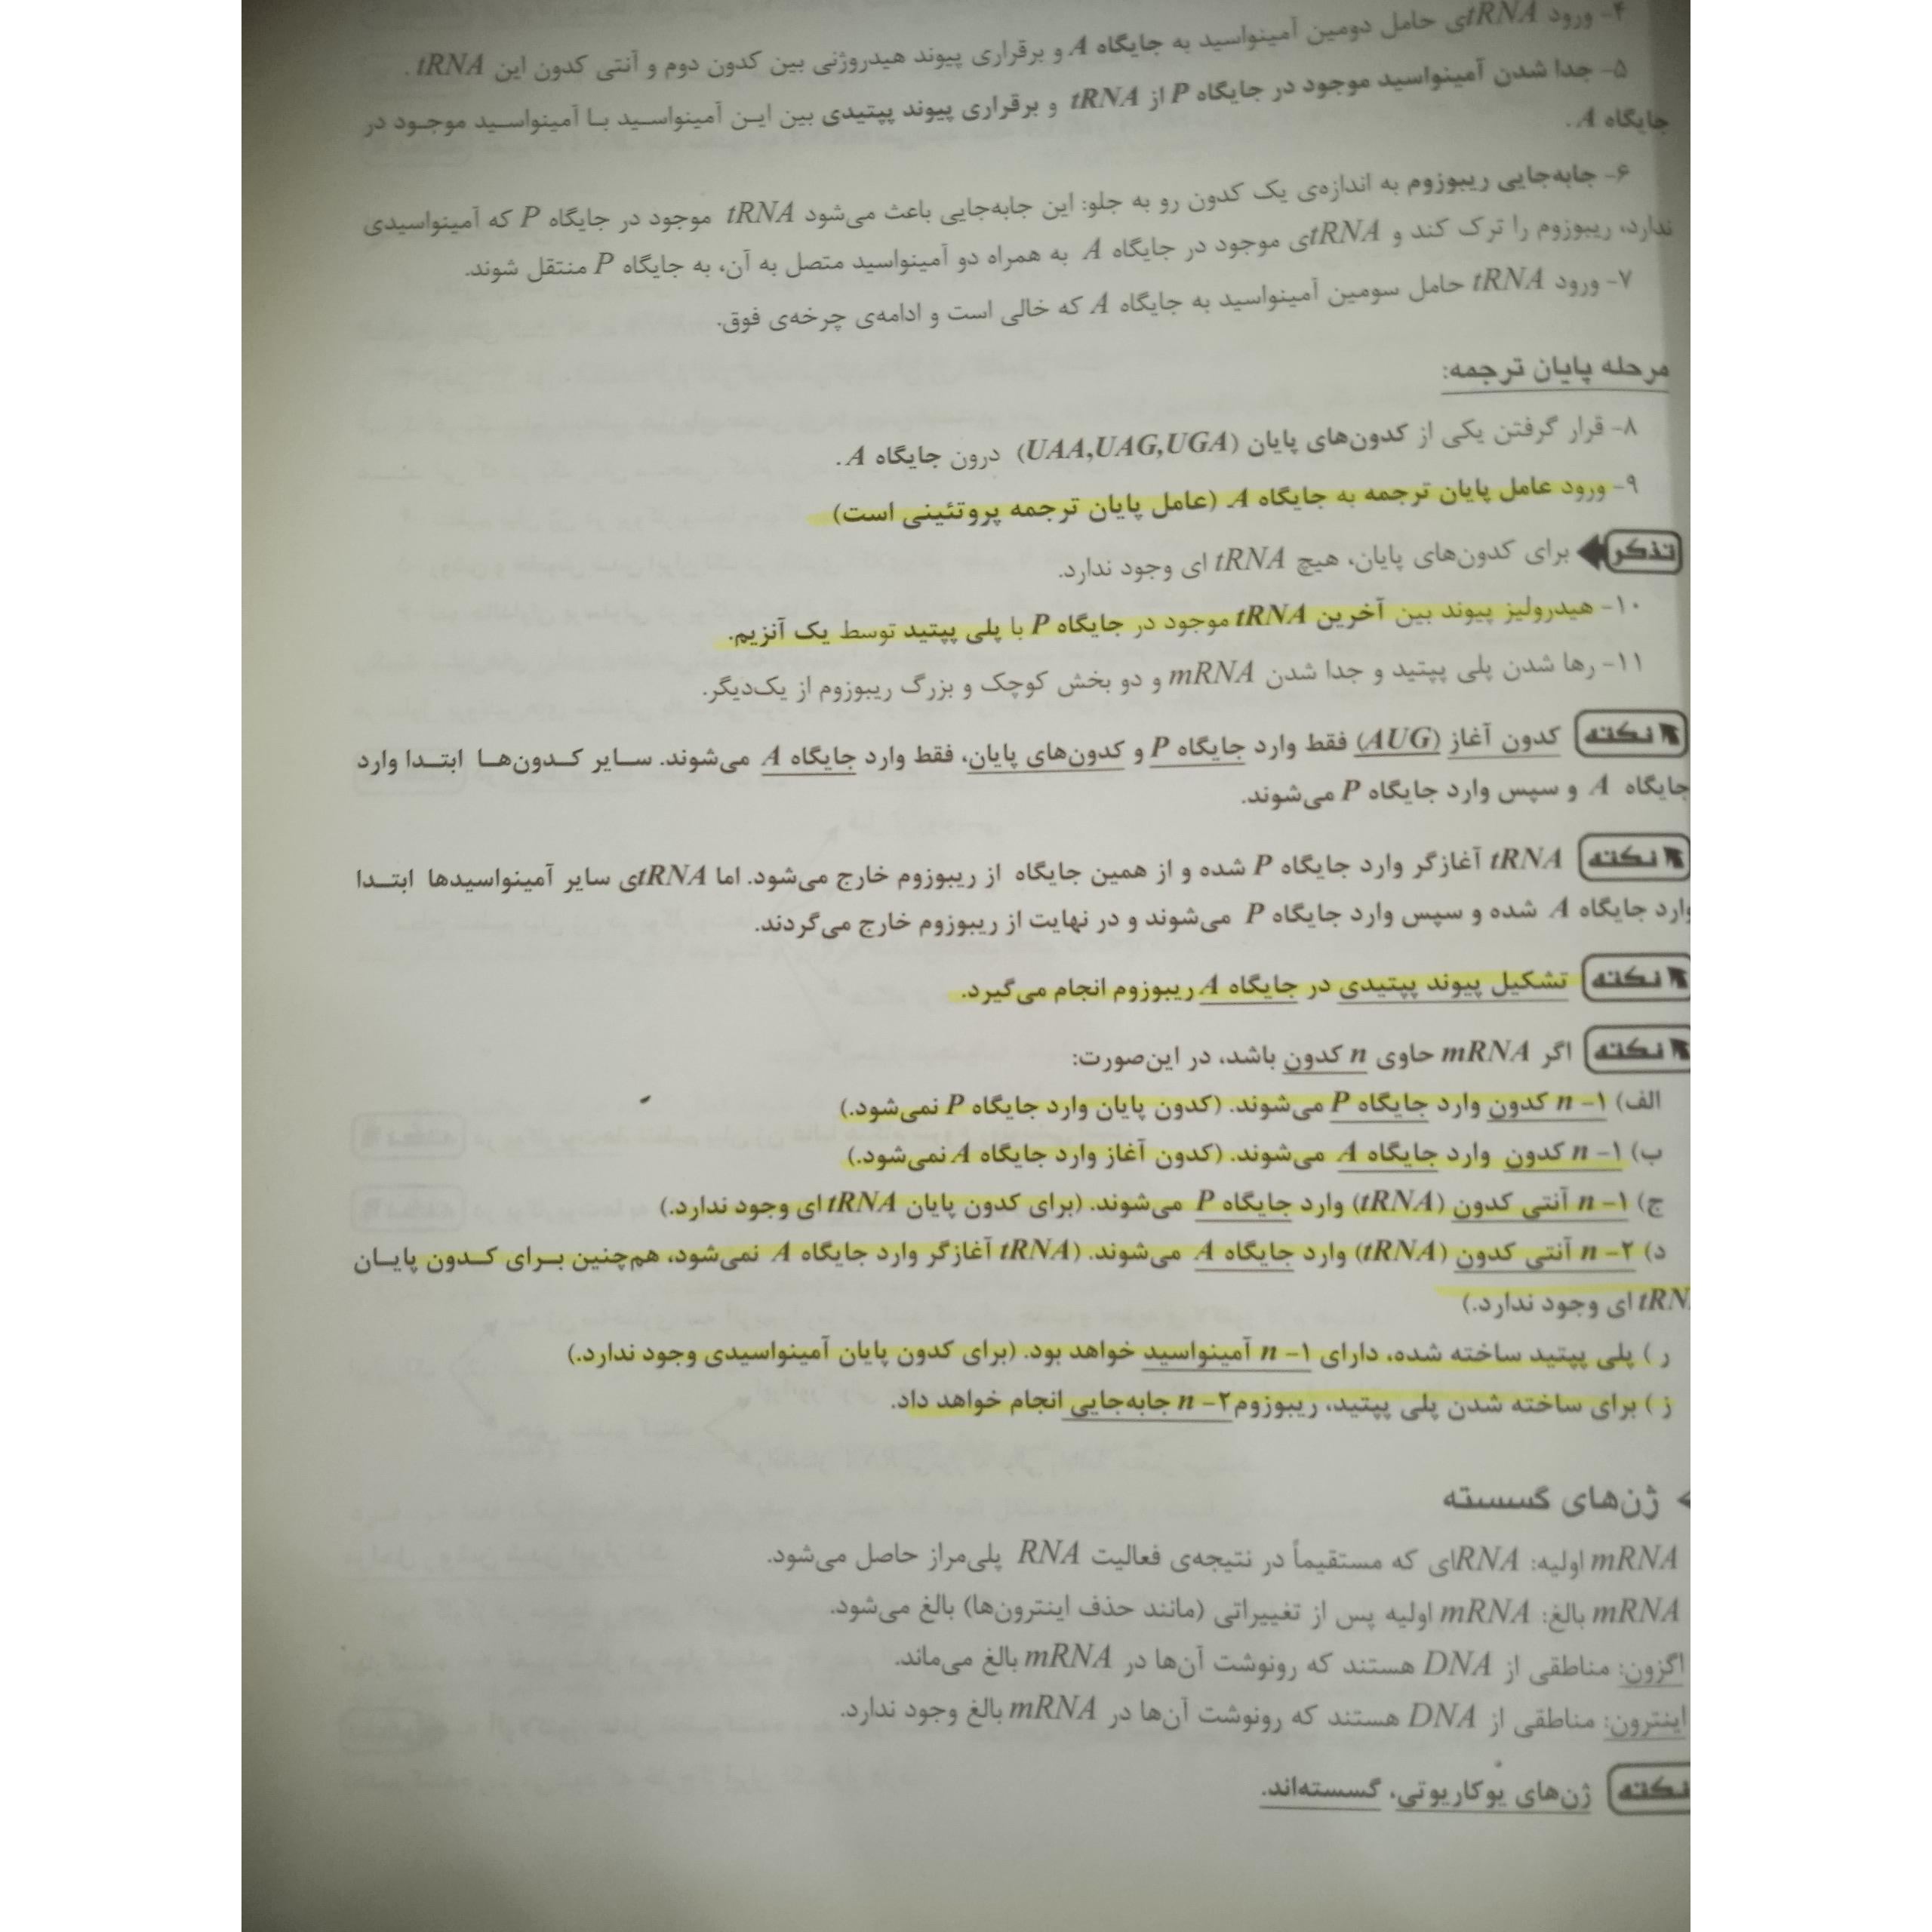 ۴- ورود tRNAی حامل دومین آمینواسید به جایگاه A و برقراری پیوند هیدروژنی بین کدون دوم و آنتی کدون این tRNA .
۵- جدا شدن آمینواسید موجود در جایگاه P از tRNA و برقراری پیوند پپتیدی بین ایـن آمینواسـید بـا آمینواسـید موجـود در
جایگاه A .
۶- جابه‌جایی ریبوزوم به اندازه‌ی یک کدون رو به جلو: این جابه‌جایی باعث می‌شود tRNA موجود در جایگاه P که آمینواسیدی
ندارد، ریبوزوم را ترک کند و tRNAی موجود در جایگاه A به همراه دو آمینواسید متصل به آن، به جایگاه P منتقل شوند.
۷- ورود tRNA حامل سومین آمینواسید به جایگاه A که خالی است و ادامه‌ی چرخه‌ی فوق.
مرحله پایان ترجمه:
۸- قرار گرفتن یکی از کدون‌های پایان (UAA,UAG,UGA) درون جایگاه A .
۹- ورود عامل پایان ترجمه به جایگاه A. (عامل پایان ترجمه پروتئینی است)
تذکر برای کدون‌های پایان، هیچ tRNA ای وجود ندارد.
۱۰- هیدرولیز پیوند بین آخرین tRNA موجود در جایگاه P با پلی پپتید توسط یک آنزیم.
۱۱- رها شدن پلی پپتید و جدا شدن mRNA و دو بخش کوچک و بزرگ ریبوزوم از یک‌دیگر.
نکته کدون آغاز (AUG) فقط وارد جایگاه P و کدون‌های پایان، فقط وارد جایگاه A می‌شوند. سـایر کـدون‌هـا ابتـدا وارد
جایگاه A و سپس وارد جایگاه P می‌شوند.
نکته tRNA آغازگر وارد جایگاه P شده و از همین جایگاه از ریبوزوم خارج می‌شود. اما tRNAی سایر آمینواسیدها ابتـدا
وارد جایگاه A شده و سپس وارد جایگاه P می‌شوند و در نهایت از ریبوزوم خارج می‌گردند.
نکته تشکیل پیوند پپتیدی در جایگاه A ریبوزوم انجام می‌گیرد.
نکته اگر mRNA حاوی n کدون باشد، در این‌صورت:
الف) n -۱ کدون وارد جایگاه P می‌شوند. (کدون پایان وارد جایگاه P نمی‌شود.)
ب) n -۱ کدون وارد جایگاه A می‌شوند. (کدون آغاز وارد جایگاه A نمی‌شود.)
ج) n -۱ آنتی کدون (tRNA) وارد جایگاه P می‌شوند. (برای کدون پایان tRNA ای وجود ندارد.)
د) n -۲ آنتی کدون (tRNA) وارد جایگاه A می‌شوند. (tRNA آغازگر وارد جایگاه A نمی‌شود، هم‌چنین بـرای کـدون پایـان
tRNA ای وجود ندارد.)
ر ) پلی پپتید ساخته شده، دارای n -۱ آمینواسید خواهد بود. (برای کدون پایان آمینواسیدی وجود ندارد.)
ز ) برای ساخته شدن پلی پپتید، ریبوزوم n -۲ جابه‌جایی انجام خواهد داد.
> ژن‌های گسسته
mRNA اولیه: RNAای که مستقیماً در نتیجه‌ی فعالیت RNA پلی‌مراز حاصل می‌شود.
mRNA بالغ: mRNA اولیه پس از تغییراتی (مانند حذف اینترون‌ها) بالغ می‌شود.
اگزون: مناطقی از DNA هستند که رونوشت آن‌ها در mRNA بالغ می‌ماند.
اینترون: مناطقی از DNA هستند که رونوشت آن‌ها در mRNA بالغ وجود ندارد.
نکته ژن‌های یوکاریوتی، گسسته‌اند.